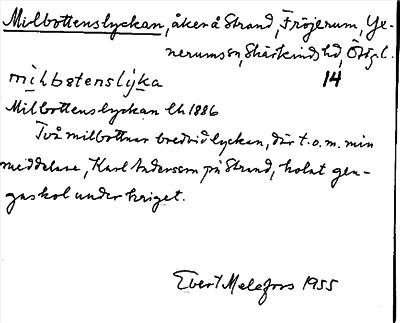 Milbottenslyckan, åker å Strand, Fröjerum, Ye-
nerums sn, Skärkinds hd, Östgl.
milbotenslyka 14
Milbottenslyckan lh 1886
Två milbottnar bredvid lyckan, där t.o.m. min
meddelare, Karl Andersson på Strand, kolat gen-
gaskol under kriget.
Evert Melefors 1955